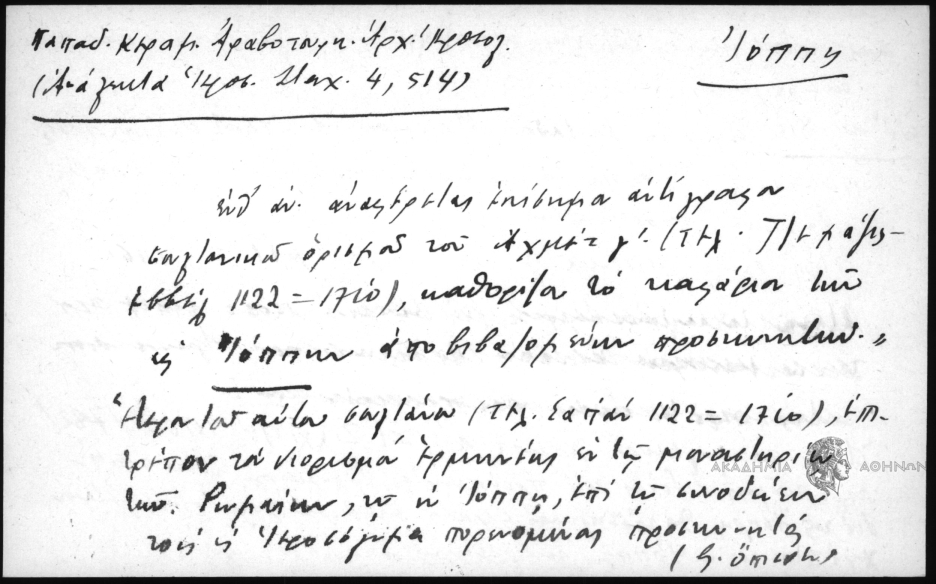 Παπαδ. Κεραμ. Αραβοτουρκ. Αρχ. Ιεροσολ.
Ἰόππη
(Ἀνάλεκτα Ἱεροσ. Σταχ. 4, 514)
ἀρ. ἀναφέρεται ἐπίσημον ἀντίγραφον
σουλτανικοῦ ὁρισμοῦ τοῦ Ἀχμὲτ γ'. (τέλ. Τζεμάζιλ-
1122 = 1710), καθορίζον τὸ τῶν
εἰς Ἰόππην ἀποβιβαζομένων προσκυνητῶν."
Ἕτερον τοῦ αὐτοῦ σουλτάνου (τέλ. Σαπάν 1122 = 1710), ἐπι-
τρέπον τὸν διορισμὸν ἑρμηνέως ἐν τῷ μοναστηρίῳ
τῶν Ρωμαίων, τῷ ἐν Ἰόππῃ, ἐπὶ τῷ συνοδεύειν
τοὺς εἰς Ἱεροσόλυμα πορευομένους προσκυνητάς
(ἔ. ὄπισθεν)
ΑΚΑΔΗΜΙΑ ΑΘΗΝΩΝ